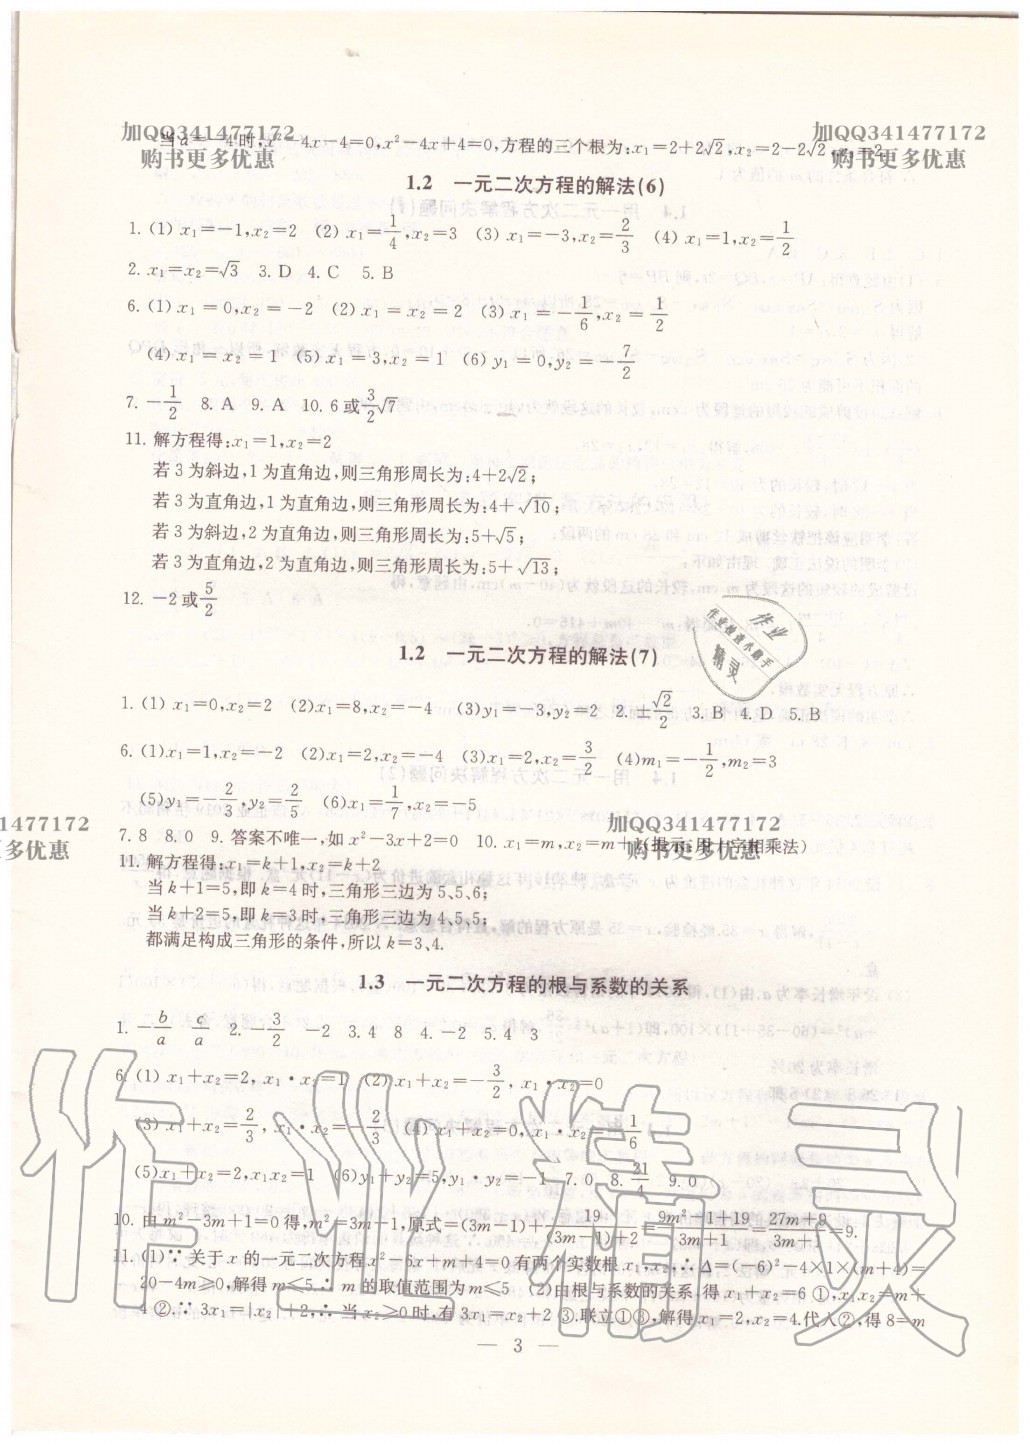 加QQ341477172
购书更多优惠
加QQ341477172
购书更多优惠
当a=-4时,x²-4x-4=0,x²-4x+4=0,方程的三个根为:x₁=2+2√2,x₂=2-2√2,
1.2 一元二次方程的解法(6)
1. (1) x₁=-1,x₂=2 (2) x₁=1/4,x₂=3 (3) x₁=-3,x₂=2/3 (4) x₁=1,x₂=1/2
2. x₁=x₂=√3 3. D 4. C 5. B
6. (1) x₁=0,x₂=-2 (2) x₁=x₂=2 (3) x₁=-1/6,x₂=1/2
(4) x₁=x₂=1 (5) x₁=3,x₂=1 (6) y₁=0,y₂=-7/2
7. -1/2 8. A 9. A 10. 6或3/2√7
11. 解方程得:x₁=1,x₂=2
若3为斜边,1为直角边,则三角形周长为:4+2√2;
若3为直角边,1为直角边,则三角形周长为:4+√10;
若3为斜边,2为直角边,则三角形周长为:5+√5;
若3为直角边,2为直角边,则三角形周长为:5+√13;
12. -2或5/2
作业
作业检查小助手
精灵
1.2 一元二次方程的解法(7)
1. (1) x₁=0,x₂=2 (2)x₁=8,x₂=-4 (3)y₁=-3,y₂=2 2.±√2/2 3. B 4. D 5. B
6. (1)x₁=1,x₂=-2 (2)x₁=2,x₂=-4 (3)x₁=2,x₂=3/2 (4)m₁=-1/2,m₂=3
(5)y₁=-2/3,y₂=2/5 (6)x₁=1/7,x₂=-5
1477172
多优惠
加QQ341477172
购书更多优惠
7. 8 8. 0 9. 答案不唯一,如x²-3x+2=0 10. x₁=m,x₂=m+1(提示:用十字相乘法)
11. 解方程得:x₁=k+1,x₂=k+2
当k+1=5,即k=4时,三角形三边为5、5、6;
当k+2=5,即k=3时,三角形三边为4、5、5;
都满足构成三角形的条件,所以k=3、4.
1.3 一元二次方程的根与系数的关系
1. -b/a c/a 2. -3/2 -2 3. 4 8 4. -2 5. 4 3
6. (1) x₁+x₂=2, x₁·x₂=1 (2) x₁+x₂=-3/2, x₁·x₂=0
(3) x₁+x₂=2/3, x₁·x₂=-2/3 (4) x₁+x₂=0,x₁·x₂=-1/6
(5)x₁+x₂=2,x₁x₂=1 (6)y₁+y₂=5,y₁y₂=-1 7. 0 8. 21/4 9. 0
10. 由m²-3m+1=0得,m²=3m-1,原式=(3m-1)+19/((3m-1)+2)=(9m²-1+19)/(3m+1)=(27m+9)/(3m+1)=9.
11. (1)∵关于x的一元二次方程x²-6x+m+4=0有两个实数根x₁,x₂,∴Δ=(-6)²-4×1×(m+4)=
20-4m≥0,解得m≤5.∴m的取值范围为m≤5 (2)由根与系数的关系,得x₁+x₂=6①,x₁x₂=m+
4②.∵3x₁=|x₂|+2,∴当x₂≥0时,有3x₁=x₂+2③.联立①③,解得x₁=2,x₂=4.代入②,得8=m
作业精灵
— 3 —